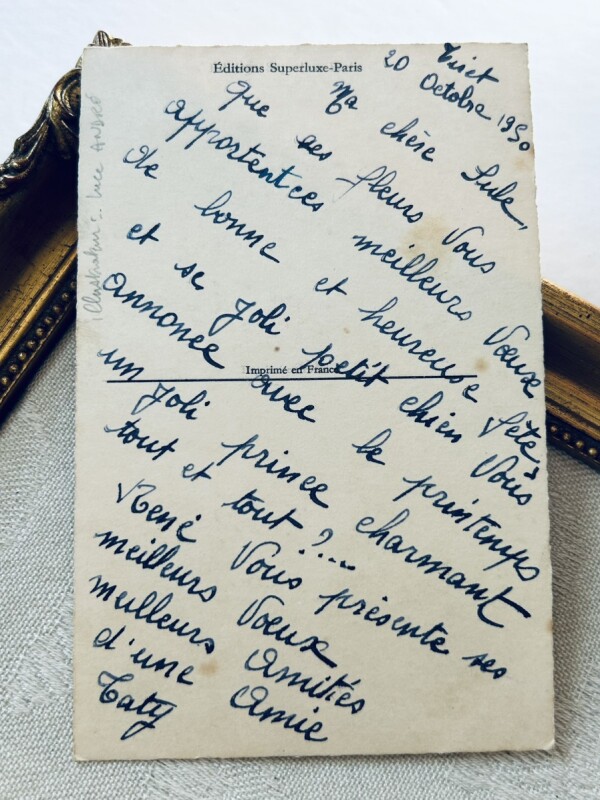 Éditions Superluxe-Paris
20 Octobre 1950
Ma chère Lule,
Que ses fleurs Vous
apportent ces meilleurs Vœux
de bonne et heureuse fête
et se Joli petit chien Vous
annonce avec le printemps
un Joli prince charmant
tout et tout ?...
René Vous présente ses
meilleurs Vœux
meilleurs Amitiés
d'une Amie
Taty
Imprimé en France
Illustrateur : Luce ANDRÉ